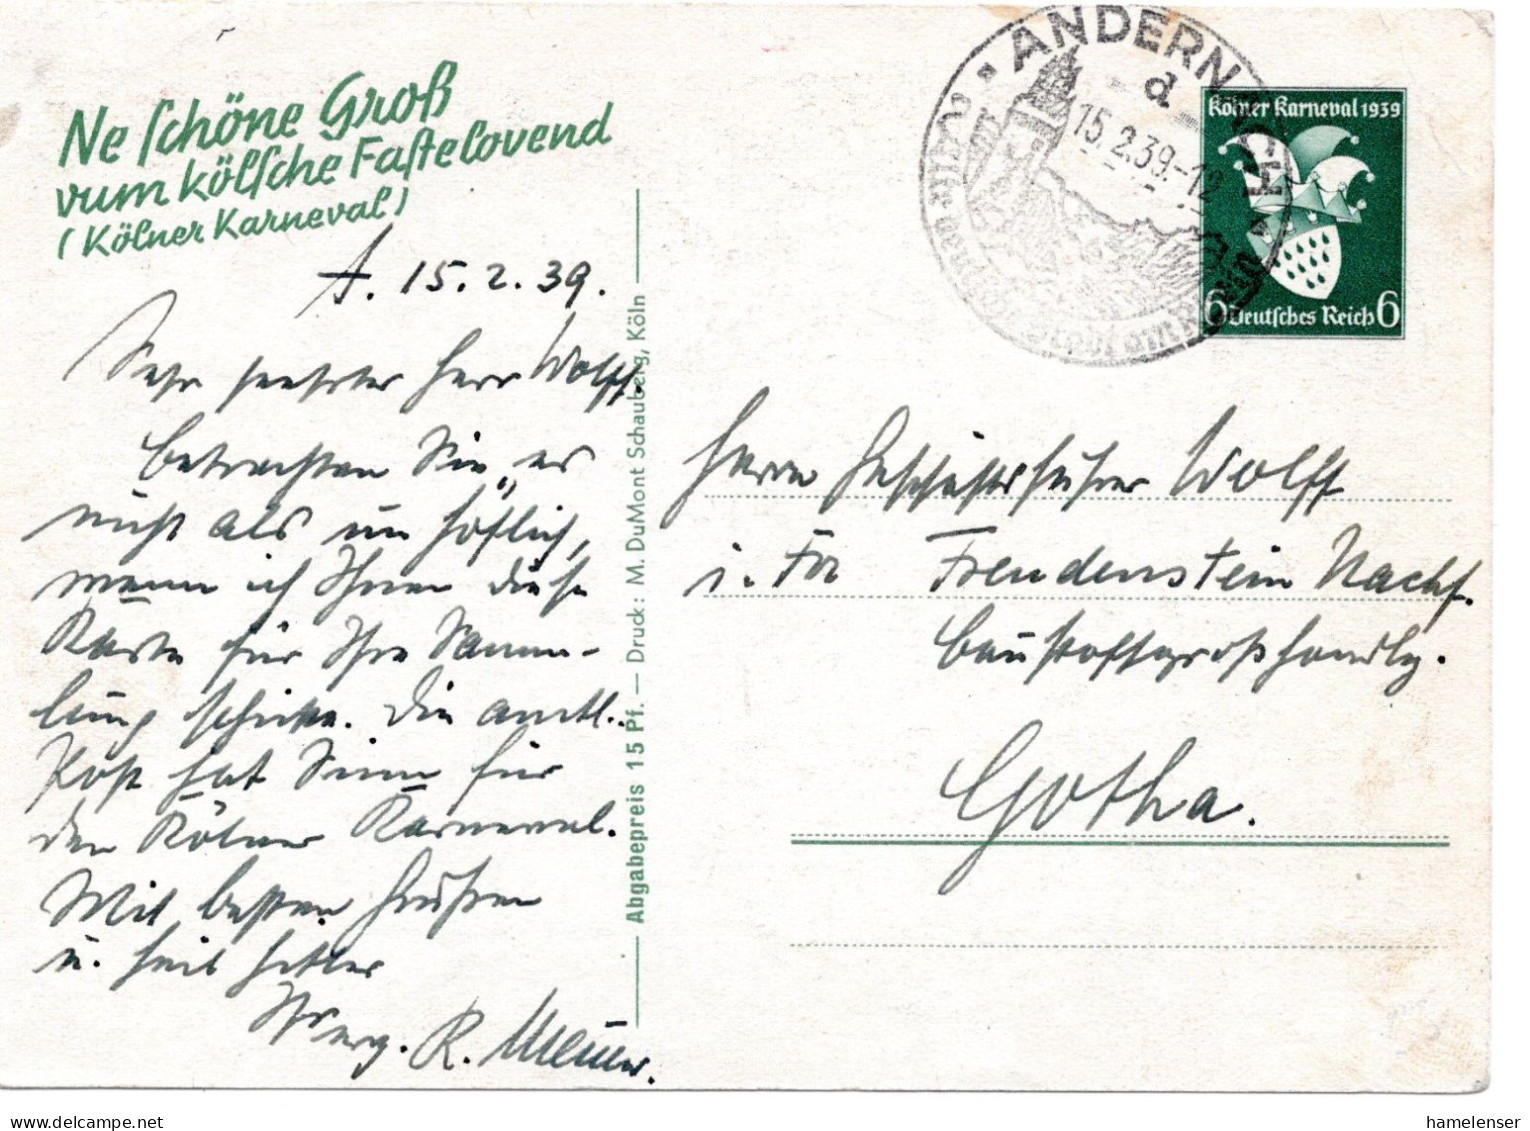 Ne schöne Groß
vum kölsche Fastelovend
(Kölner Karneval)
A. 15. 2. 39.
Sehr geehrter Herr Wolff.
betrachten Sie es
nicht als unhöflich,
wenn ich Ihnen diese
Karte für Ihre Samm-
lung schicke. Die amtl.
Post hat Sinn für
den Kölner Karneval.
Mit besten Grüßen
u. Heil Hitler
Ihr erg. R.
Abgabepreis 15 Pf. — Druck: M. DuMont Schauberg, Köln
ANDERNACH
d
15.2.39.-12
Kölner Karneval 1939
6 Deutsches Reich 6
Herrn Geschäftsführer Wolff
i. Fa Freudenstein Nachf.
Baustoffgroßhandlg.
Gotha.
hamelenser